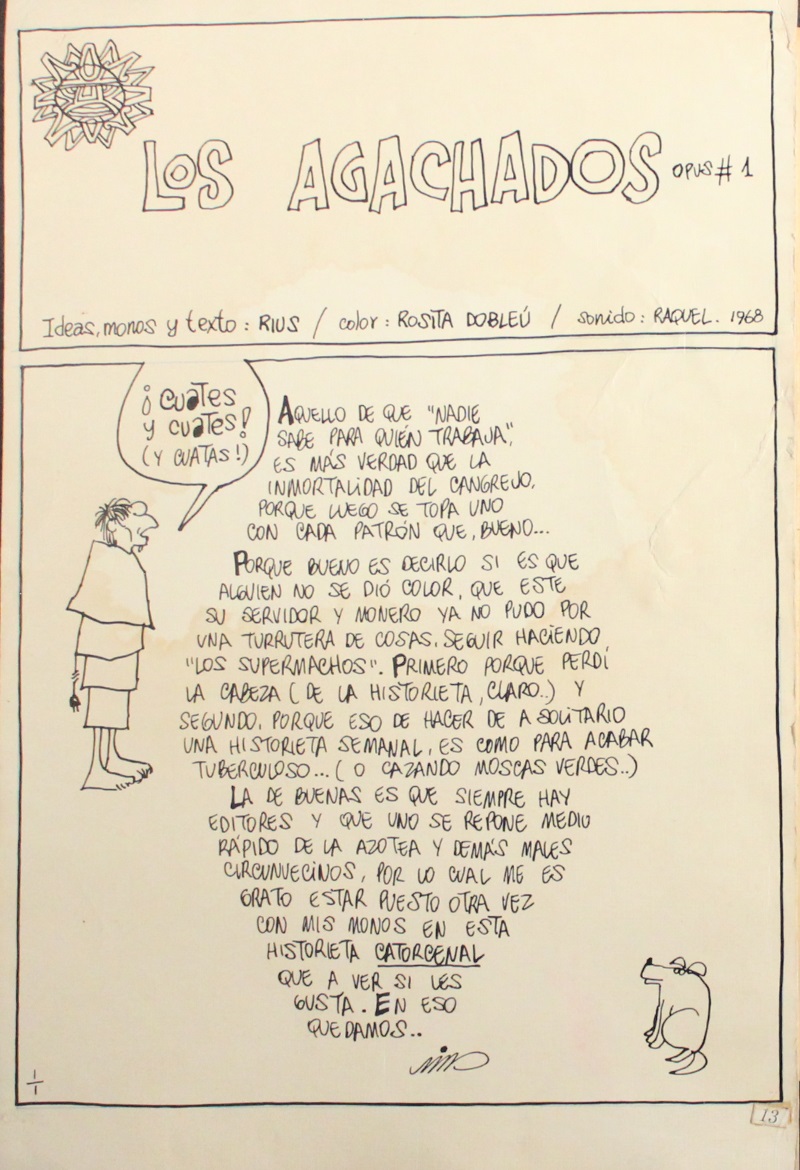 LOS AGACHADOS OPUS # 1
Ideas, monos y texto: RIUS / color: ROSITA DOBLEÚ / sonido: RAQUEL. 1968
¡CUATES
Y CUATES!
(Y CUATAS!)
AQUELLO DE QUE "NADIE
SABE PARA QUIÉN TRABAJA",
ES MÁS VERDAD QUE LA
INMORTALIDAD DEL CANGREJO,
PORQUE LUEGO SE TOPA UNO
CON CADA PATRÓN QUE, BUENO...
PORQUE BUENO ES DECIRLO SI ES QUE
ALGUIEN NO SE DIÓ COLOR, QUE ESTE
SU SERVIDOR Y MONERO YA NO PUDO POR
UNA TURRUTERA DE COSAS, SEGUIR HACIENDO
"LOS SUPERMACHOS". PRIMERO PORQUE PERDÍ
LA CABEZA (DE LA HISTORIETA, CLARO..) Y
SEGUNDO, PORQUE ESO DE HACER DE A SOLITARIO
UNA HISTORIETA SEMANAL, ES COMO PARA ACABAR
TUBERCULOSO... (O CAZANDO MOSCAS VERDES..)
LA DE BUENAS ES QUE SIEMPRE HAY
EDITORES Y QUE UNO SE REPONE MEDIO
RÁPIDO DE LA AZOTEA Y DEMÁS MALES
CIRCUNVECINOS, POR LO CUAL ME ES
GRATO ESTAR PUESTO OTRA VEZ
CON MIS MONOS EN ESTA
HISTORIETA CATORCENAL
QUE A VER SI LES
GUSTA. EN ESO
QUEDAMOS..
RIUS
1/1
13